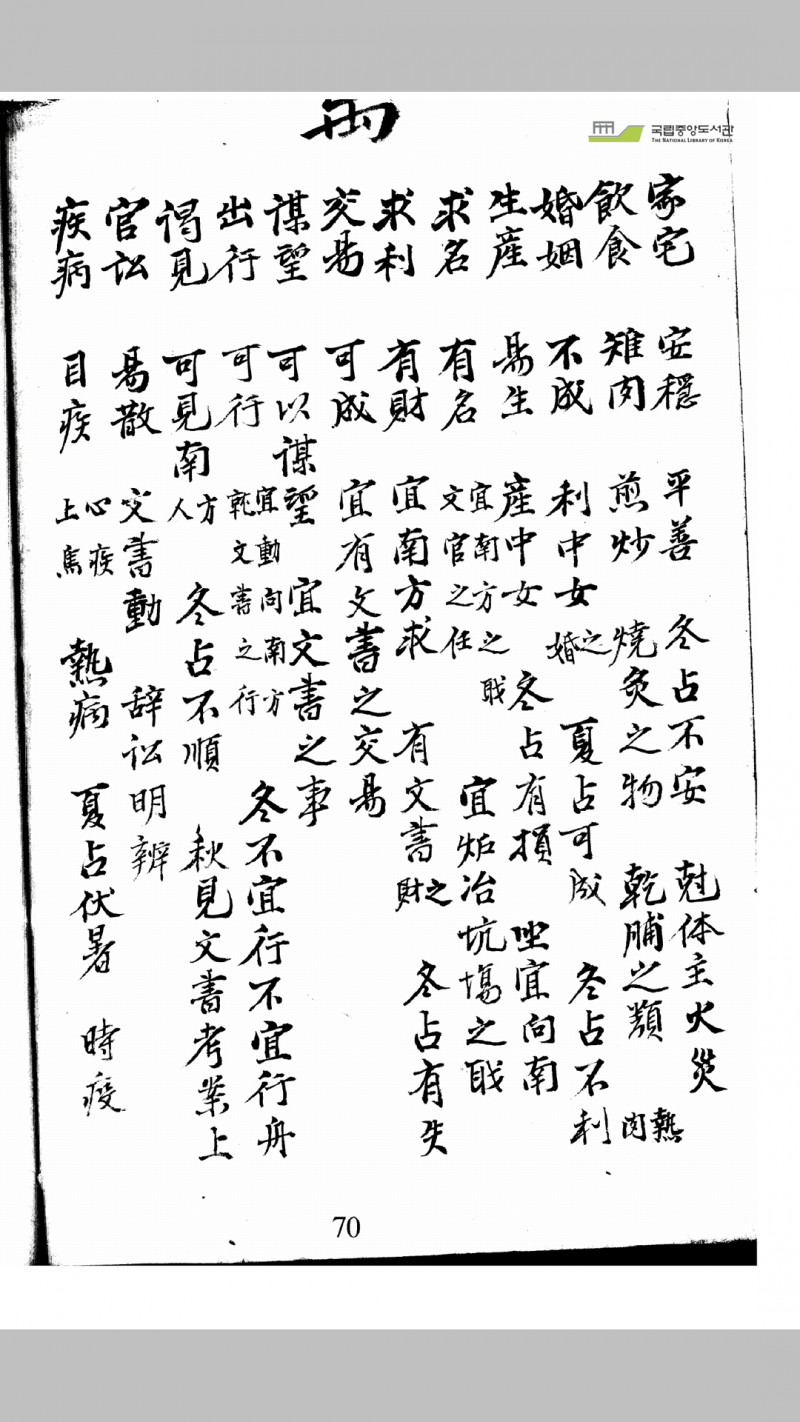 国립중앙도서관
THE NATIONAL LIBRARY OF KOREA
家宅 安穩 平善 冬占不安 尅体主火災
飮食 雉肉 煎炒 燒灸之物 乾脯之類 熱肉
婚姻 不成 利中女之婚 夏占可成 冬占不利
生産 易生 産中女 冬占有損 坐宜向南
求名 有名 宜南方之職 文官之任 宜炉冶坑場之職
求利 有財 宜南方求 有文書之財 冬占有失
交易 可成 宜有文書之交易
謀望 可以謀望 宜文書之事
出行 可行 宜動向南方 乾文書之行 冬不宜行不宜行舟
謁見 可見南方人 冬占不順 秋見文書考業上
官訟 易散 文書動 辞訟明辨
疾病 目疾 心疾 上焦 熱病 夏占伏暑 時疫
70